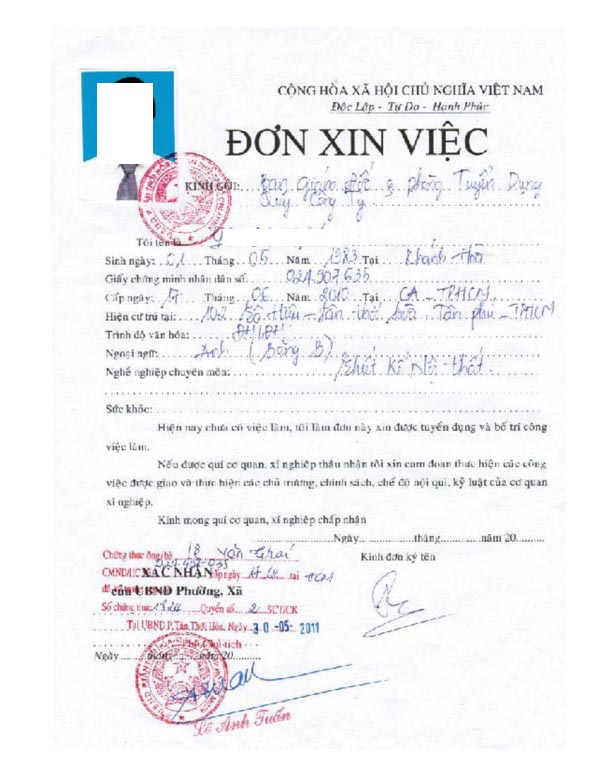 CỘNG HÒA XÃ HỘI CHỦ NGHĨA VIỆT NAM
Độc Lập - Tự Do - Hạnh Phúc
ĐƠN XIN VIỆC
KÍNH GỞI: Ban Giám Đốc & phòng Tuyển Dụng
Quý Công Ty
Tôi tên là
Sinh ngày: 01 Tháng 05 Năm 1983 Tại Khánh Hòa
Giấy chứng minh nhân dân số: 024907635
Cấp ngày: 17 Tháng 06 Năm 2010 Tại CA - TPHCM
Hiện cư trú tại: 102 - Tân thới hòa Tân phú - TPHCM
Trình độ văn hóa:
Ngoại ngữ: Anh (Bằng B)
Nghề nghiệp chuyên môn: Thiết Kế Nội thất
Sức khỏe:
Hiện nay chưa có việc làm, tôi làm đơn này xin được tuyển dụng và bố trí công
việc làm.
Nếu được quí cơ quan, xí nghiệp thâu nhận tôi xin cam đoan thực hiện các công
việc được giao và thực hiện các chủ trương, chính sách, chế độ nội qui, kỷ luật của cơ quan
xí nghiệp.
Kính mong quí cơ quan, xí nghiệp chấp nhận
Ngày tháng năm 20
Chứng thực ông/bà Văn
Kính đơn ký tên
CMND XÁC NHẬN cấp ngày tại HCM
của UBND Phường, Xã
Số chứng thực 1324 Quyển số 2 SCT/CK
Tại UBND P.Tân Thới Hòa, Ngày 30-05-2011
Phó Chủ tịch
Ngày tháng năm 20
Lê Anh Tuấn